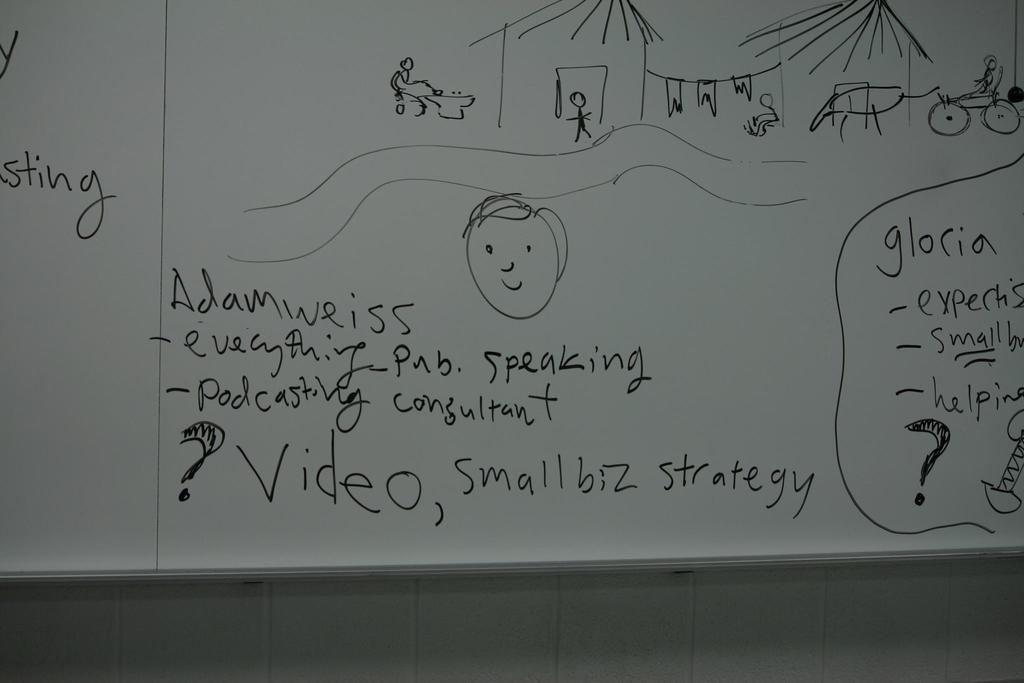 y
sting
Adamweiss
- everything - Pub. speaking
- Podcasting consultant
? Video, smallbiz strategy
gloria
- expertis
- smallbu
- helping
?